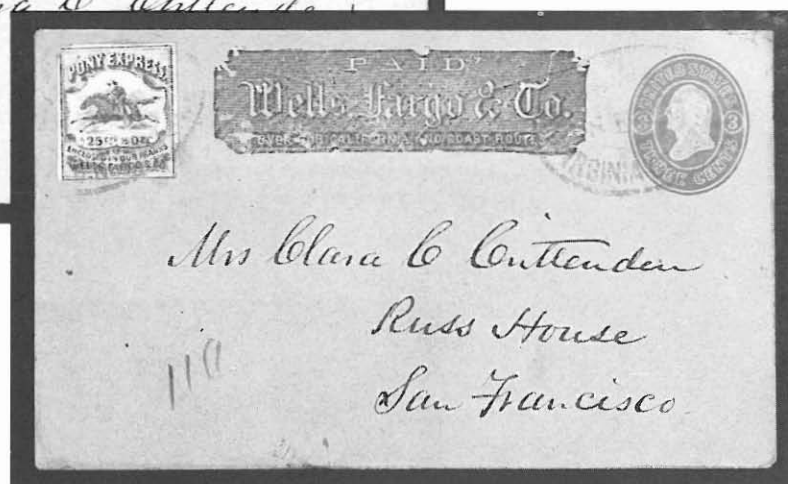 PONY EXPRESS.
25 Cts
WELLS, FARGO & Co.
PAID
Wells, Fargo & Co.
OVER OUR CALIFORNIA AND COAST ROUTES
UNITED STATES
3 3
THREE CENTS
VIRGINIA
Mrs Clara C Crittenden
Russ House
San Francisco
110